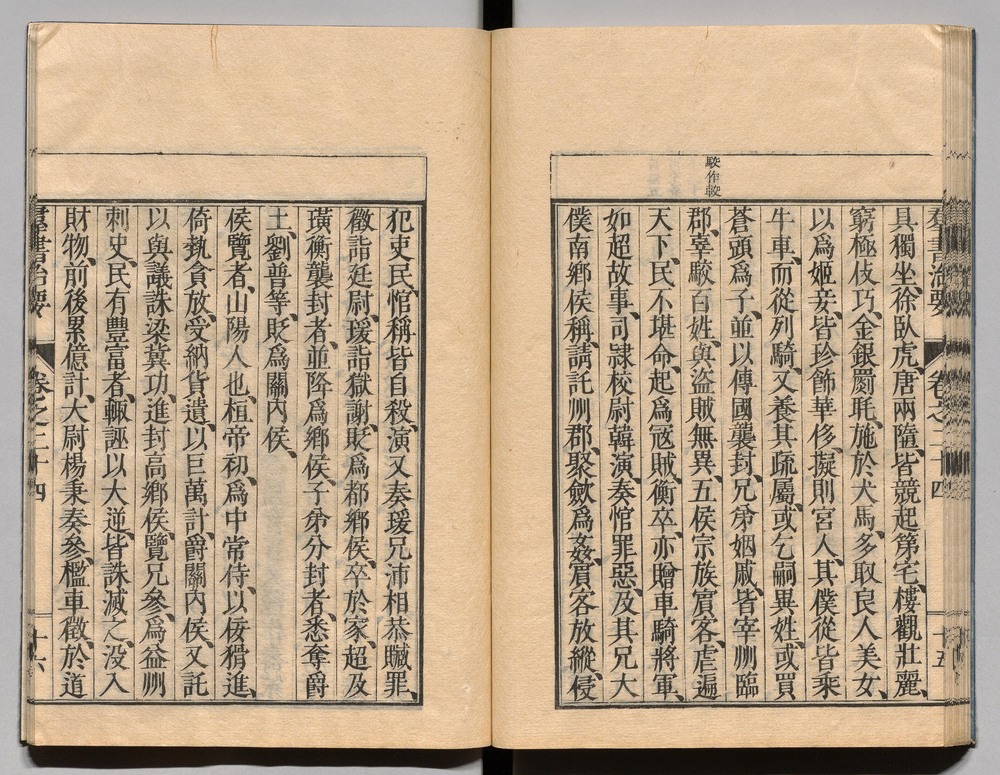 群書治要 卷之二十四 十五
駮作較
具獨坐、徐臥虎、唐兩墮、皆競起第宅、樓觀壯麗、
窮極伎巧、金銀罽毦、施於犬馬、多取良人美女、
以爲姬妾、皆珍飾華侈、擬則宮人、其僕從皆乘
牛車、而從列騎、又養其疏屬、或乞嗣異姓、或買
蒼頭爲子、並以傳國襲封、兄弟姻戚、皆宰州臨
郡、辜駮百姓、與盜賊無異、五侯宗族賓客、虐遍
天下、民不堪命、起爲寇賊、衡卒、亦贈車騎將軍、
如超故事、司隸校尉韓演、奏悺罪惡、及其兄大
僕南鄉侯稱、請託州郡、聚斂爲姦、賓客放縱、侵
犯吏民、悺稱皆自殺、演又奏瑗兄沛相恭贓罪、
徵詣廷尉、瑗詣獄謝、貶爲都鄉侯、卒於家、超及
璜衡襲封者、並降爲鄉侯、子弟分封者、悉奪爵
土、劉普等、貶爲關內侯、
侯覽者、山陽人也、桓帝初、爲中常侍、以佞猾進、
倚埶貪放、受納貨遺、以巨萬計、爵關內侯、又託
以與議誅梁冀功、進封高鄉侯、覽兄參、爲益州
刺史、民有豐富者、輒誣以大逆、皆誅滅之、沒入
財物、前後累億計、大尉楊秉奏參、檻車徵、於道
群書治要 卷之二十四 十六